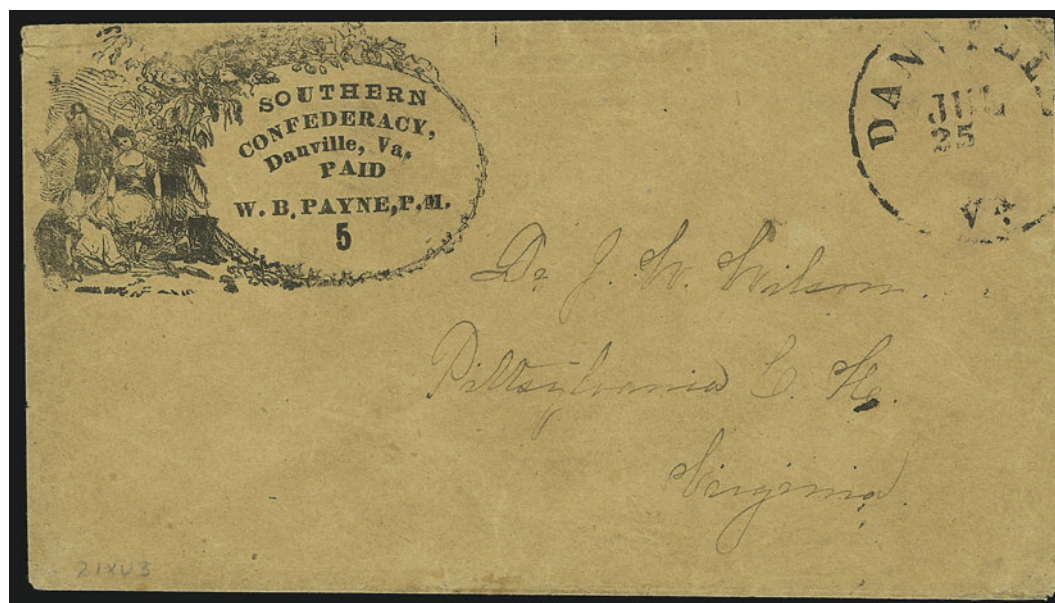 SOUTHERN
CONFEDERACY,
Danville, Va.
PAID
W. B. PAYNE, P. M.
5
DANVILLE
JUL
25
VA
Dr J. W. Wilson.
Pittsylvania C. H.
Virginia.
21XU3